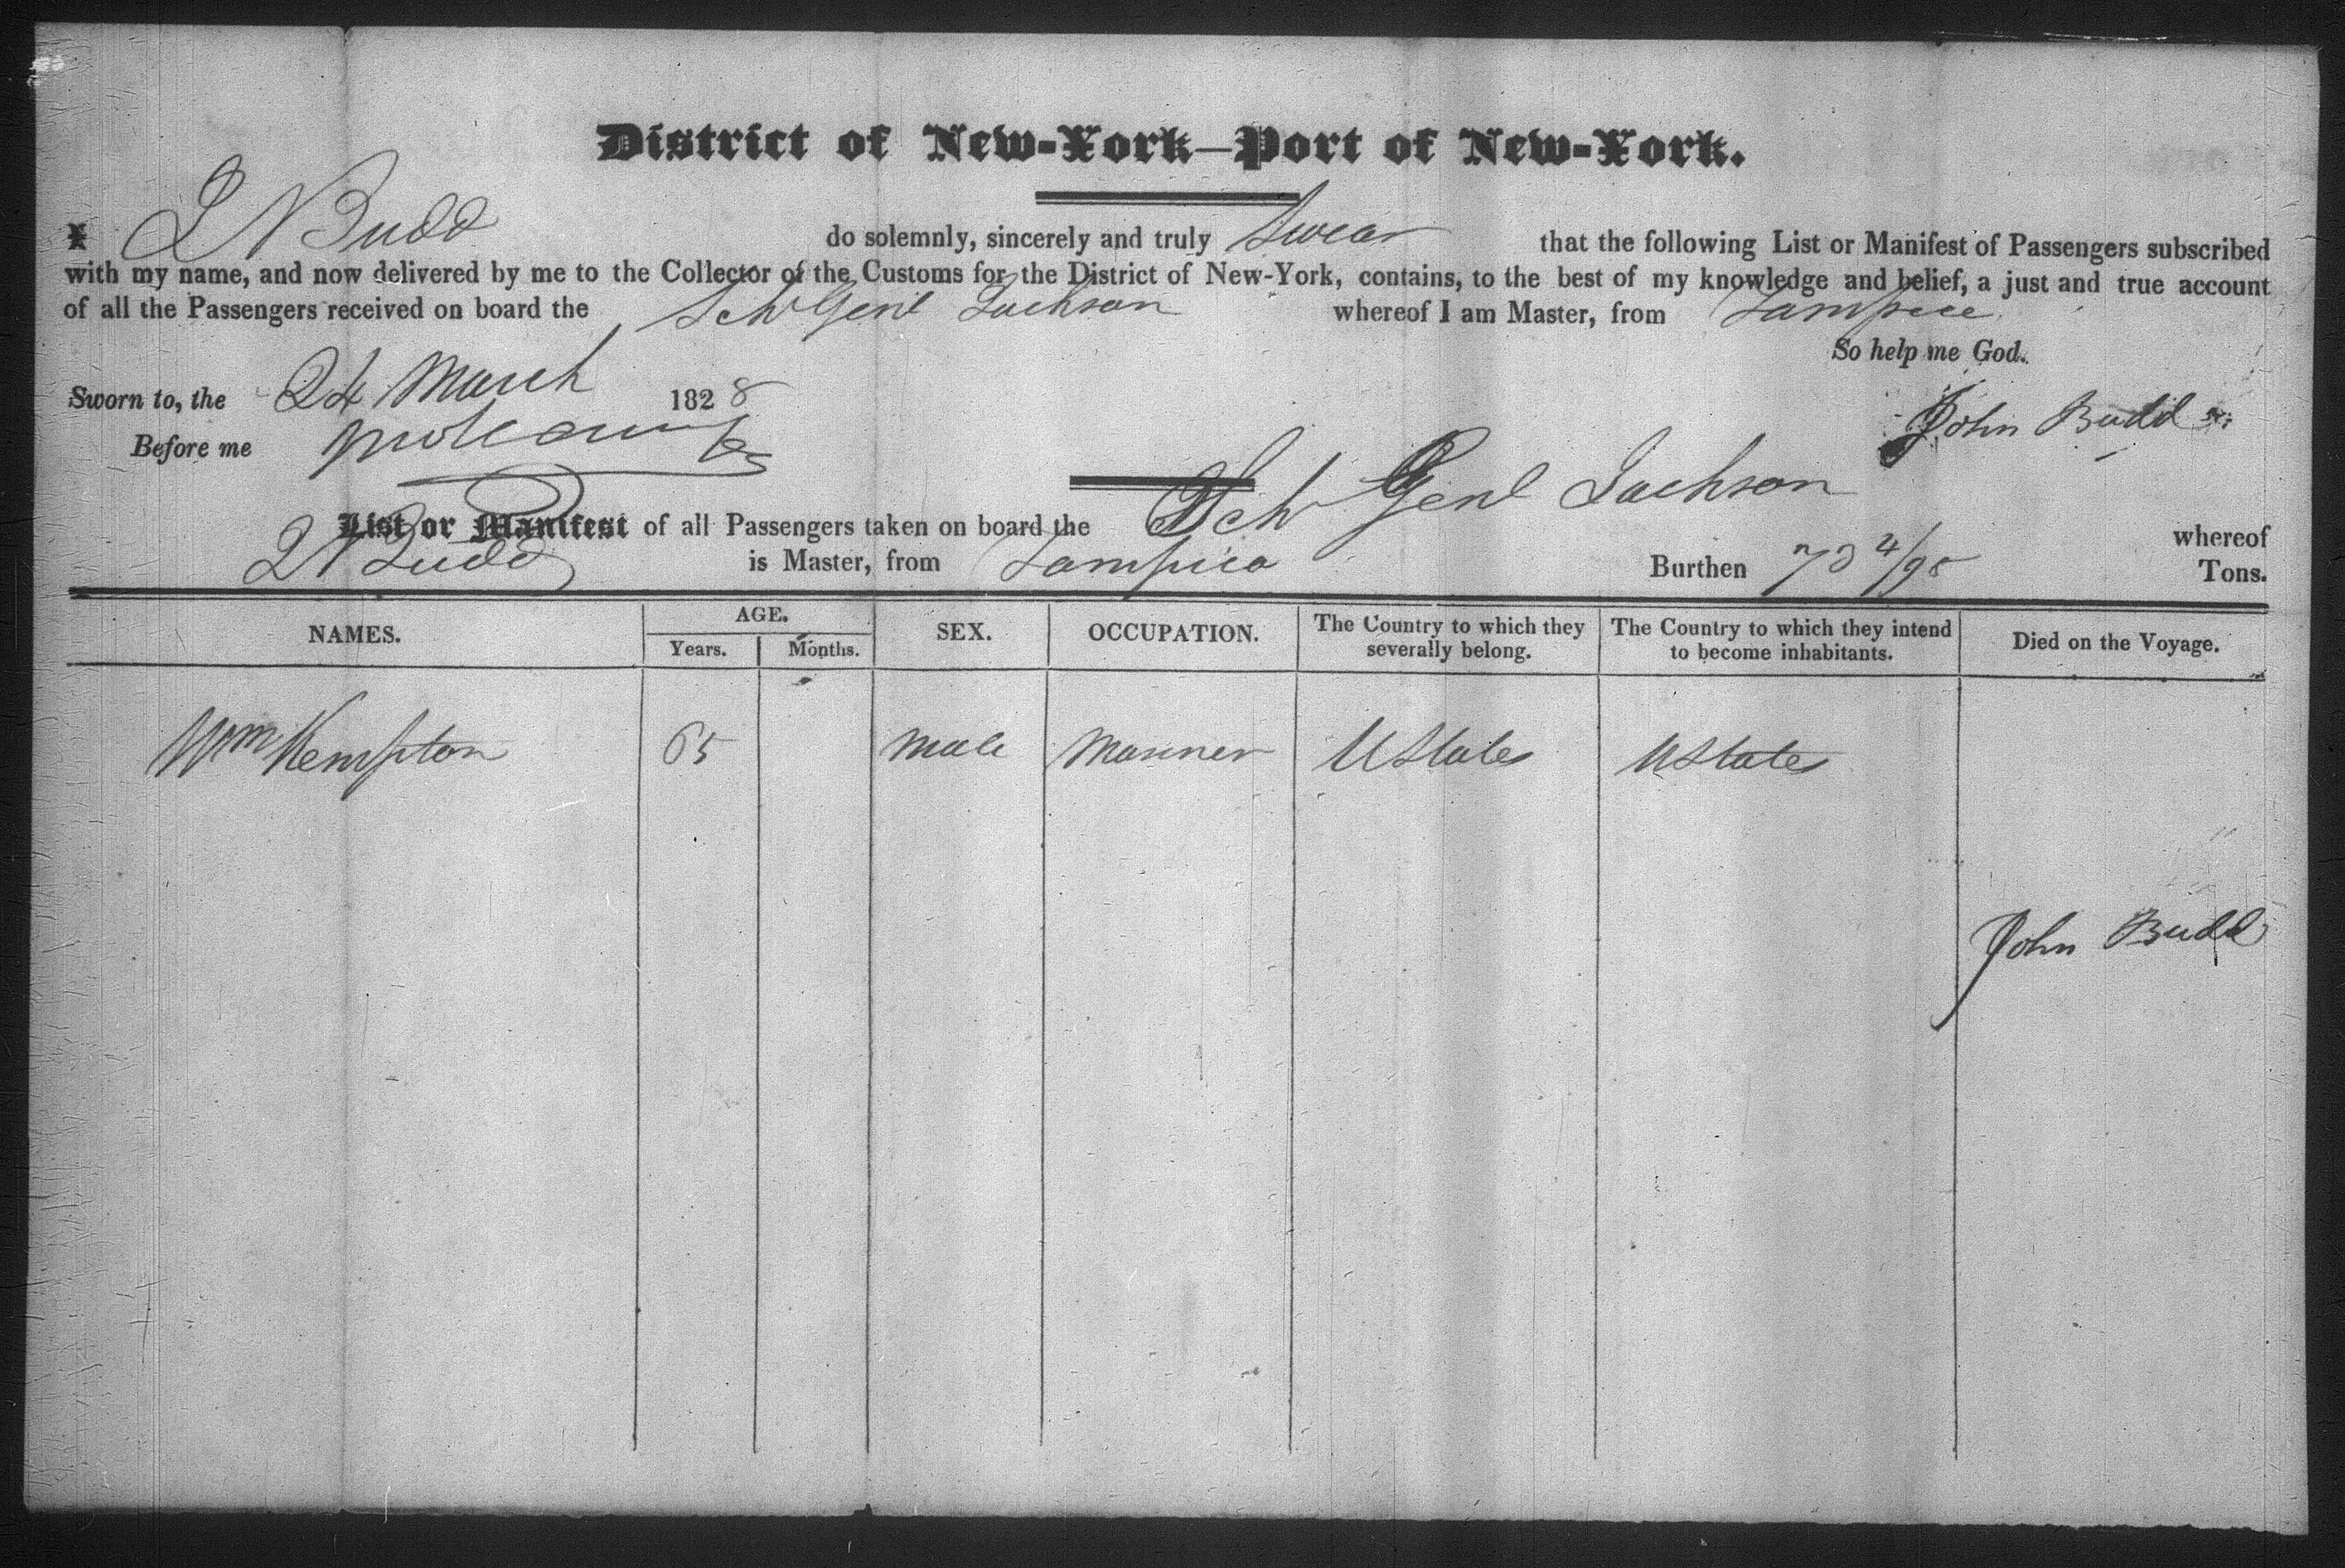 District of New-York—Port of New-York.
I J N Budd do solemnly, sincerely and truly Swear that the following List or Manifest of Passengers subscribed
with my name, and now delivered by me to the Collector of the Customs for the District of New-York, contains, to the best of my knowledge and belief, a just and true account
of all the Passengers received on board the Sch Genl Jackson whereof I am Master, from Tampico
So help me God.
Sworn to, the 24 March 1828
John Budd
Before me
List or Manifest of all Passengers taken on board the Sch Genl Jackson whereof
J N Budd is Master, from Tampico Burthen 73 4/95 Tons.
NAMES. AGE. SEX. OCCUPATION. The Country to which they severally belong. The Country to which they intend to become inhabitants. Died on the Voyage.
Years. Months.
Wm Kempton 65 Male Mariner UStates UStates
John Budd